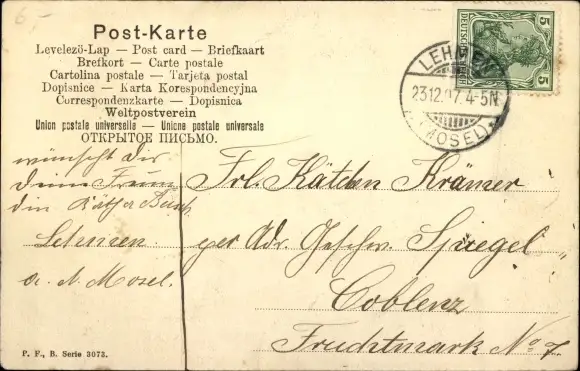 6.-
Post-Karte
Levelezö-Lap — Post card — Briefkaart
Brefkort — Carte postale
Cartolina postale — Tarjeta postal
Dopisnice — Karta Korespondencyjna
Correspondenzkarte — Dopisnica
Weltpostverein
Union postale universelle — Unione postale universale
ОТКРЫТОЕ ПИСЬМО.
5
DEUTSCHES REICH
5
LEHMEN
23.12.07. 4-5N.
(MOSEL)
wünscht dir
deine Freun
din Käthe
Lehmen
a. d. Mosel.
Frl. Kätchen Krämer
per Adr. Geschw. Spiegel
Coblenz
Fruchtmark No 7.
P. F., B. Serie 3073.